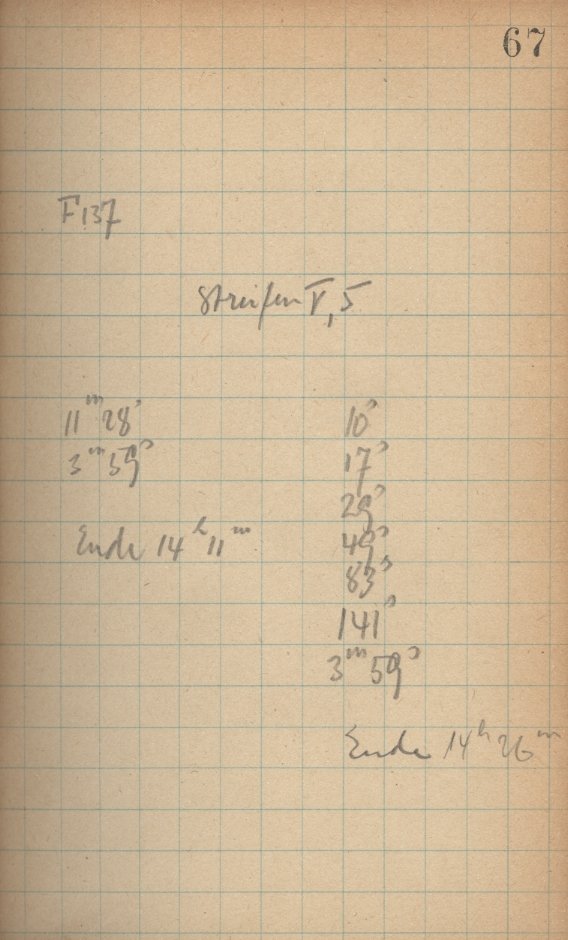 67
F137
Streifen V, 5
11ᵐ 28ˢ
3ᵐ 59ˢ
Ende 14ʰ 11ᵐ
10ˢ
17ˢ
29ˢ
49ˢ
83ˢ
141ˢ
3ᵐ 59ˢ
Ende 14ʰ 26ᵐ